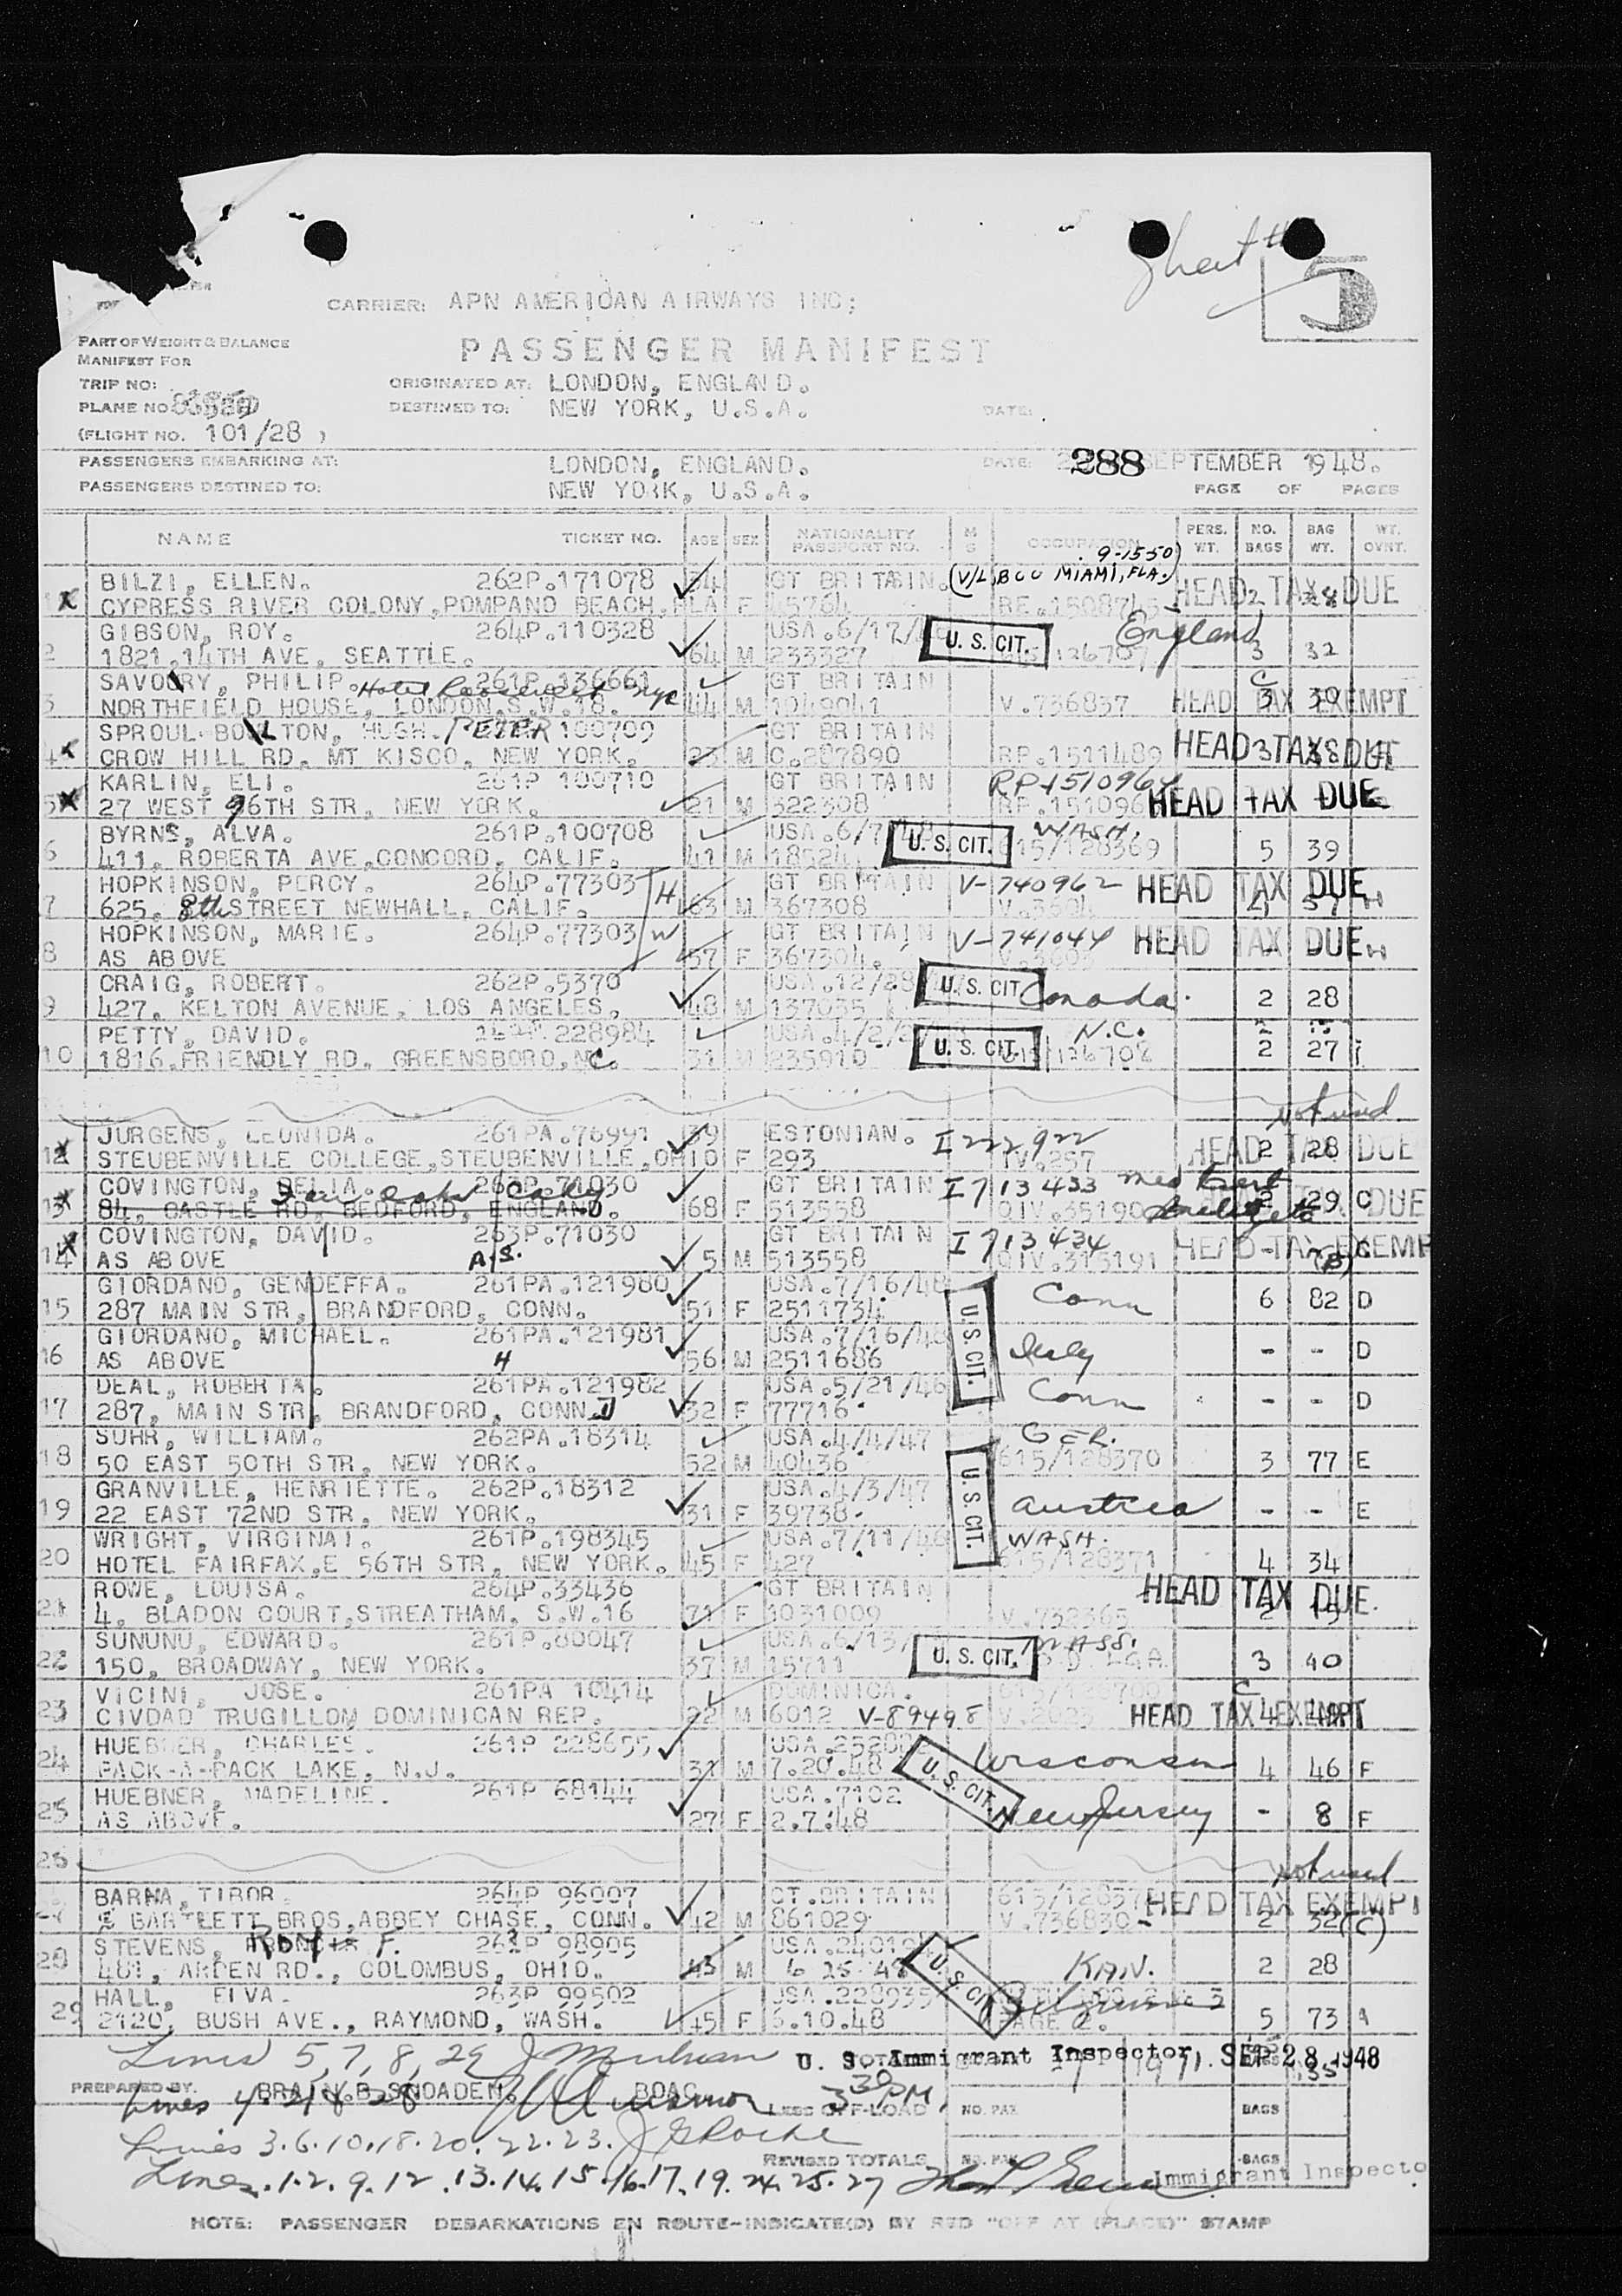 Sheet # 5
CARRIER: APN AMERICAN AIRWAYS INC;
PART OF WEIGHT & BALANCE
MANIFEST FOR
PASSENGER MANIFEST
TRIP NO:
ORIGINATED AT: LONDON, ENGLAND.
PLANE NO
DESTINED TO: NEW YORK, U.S.A. DATE:
(FLIGHT NO. 101/28 )
PASSENGERS EMBARKING AT: LONDON, ENGLAND. DATE: 288 SEPTEMBER 1948.
PASSENGERS DESTINED TO: NEW YORK, U.S.A. PAGE OF PAGES
NAME TICKET NO. AGE SEX NATIONALITY PASSPORT NO. M S OCCUPATION PERS. WT. NO. BAGS BAG WT. WT. OVNT.
9-15-50
BILZI, ELLEN. 262P.171078 34 GT BRITAIN. (V/L BOO MIAMI, FLA.) HEAD TAX DUE
1 x CYPRESS RIVER COLONY, POMPANO BEACH, FLA F 45764 2 28
GIBSON, ROY. 264P.110328 USA.6/17/ U. S. CIT. England
2 1821.14TH AVE, SEATTLE. 64 M 233327 3 32
SAVOURY, PHILIP. 261P.136661 Hotel Roosevelt nyc GT BRITAIN C
3 NORTHFIELD HOUSE, LONDON.S.W.18. 44 M 1049041 V.736837 HEAD TAX EXEMPT 3 39
SPROUL BOULTON, HUGH. PETER 100709 GT BRITAIN
4 x CROW HILL RD, MT KISCO, NEW YORK. 23 M C.287890 RP.1511489 HEAD TAX DUE 3 38
KARLIN, ELI. 261P 100710 GT BRITAIN RP-1510964
5 x 27 WEST 96TH STR, NEW YORK. 21 M 322308 RP.151096 HEAD TAX DUE
BYRNS, ALVA. 261P.100708 USA.6/7/48 U. S. CIT. WASH.
6 411, ROBERTA AVE, CONCORD, CALIF. 41 M 18524 615/128369 5 39
HOPKINSON, PERCY. 264P.77303 H GT BRITAIN V-740962 HEAD TAX DUE
7 625, 8th STREET NEWHALL, CALIF. 63 M 367308 4 57 H
HOPKINSON, MARIE. 264P.77303 W GT BRITAIN V-741044 HEAD TAX DUE
8 AS ABOVE 57 F 367304. H
CRAIG, ROBERT. 262P.5370 USA.12/28/ U. S. CIT. Canada.
9 427, KELTON AVENUE, LOS ANGELES. 48 M 137035 2 28
PETTY, DAVID. 228984 USA.4/2/ U. S. CIT. N.C.
10 1816.FRIENDLY RD, GREENSBORO, NC. 31 M 235910 2 27
not used
JURGENS, LEONIDA. 261PA.76991 39 ESTONIAN. I 222922
12 x STEUBENVILLE COLLEGE, STEUBENVILLE, OHIO F 293 IV.257 HEAD TAX DUE 2 28
COVINGTON, DELIA. 71030 GT BRITAIN I 713433
13 x 84, CASTLE RD, BEDFORD, ENGLAND. 68 F 513558 2 29 C DUE
COVINGTON, DAVID. 263P.71030 GT BRITAIN I 713434 HEAD TAX EXEMP
14 x AS ABOVE 5 M 513558 QIV.315191 C
GIORDANO, GENDEFFA. 261PA.121980 USA.7/16/48 U. S. CIT. Conn
15 287 MAIN STR, BRANDFORD, CONN. 51 F 2511734 6 82 D
GIORDANO, MICHAEL. 261PA.121981 USA.7/16/48 Italy
16 AS ABOVE H 56 M 2511686 - - D
DEAL, ROBERTA. 261PA.121982 USA.5/21/46 Conn
17 287, MAIN STR, BRANDFORD, CONN 32 F 77716 - - D
SUHR, WILLIAM. 262PA.18314 USA.4/4/47 GER.
18 50 EAST 50TH STR, NEW YORK. 52 M 40436 615/128370 3 77 E
GRANVILLE, HENRIETTE. 262P.18312 USA.4/3/47 U. S. CIT. Austria
19 22 EAST 72ND STR, NEW YORK. 31 F 39738 - - E
WRIGHT, VIRGINAI. 261P.198345 USA.7/11/48 WASH.
20 HOTEL FAIRFAX, E 56TH STR, NEW YORK. 45 F 427 615/128371 4 34
ROWE, LOUISA. 264P.33436 GT BRITAIN HEAD TAX DUE
21 4, BLADON COURT, STREATHAM, S.W.16 71 F 1031009 V.732365
SUNUNU, EDWARD. 261P.80047 USA.6/13/ U. S. CIT. MASS.
22 150, BROADWAY, NEW YORK. 37 M 15711 3 40
VICINI, JOSE. 261PA 10414 DOMINICA. C
23 CIVDAD TRUGILLOM DOMINICAN REP. 22 M 6012 V-89498 HEAD TAX EXEMPT
HUEBNER, CHARLES. 261P 228655 USA.25288 U. S. CIT. Wisconsin
24 PACK-A-PACK LAKE, N.J. 31 M 7.20.48 4 46 F
HUEBNER, MADELINE. 261P 68144 USA.7102 New Jersey
25 AS ABOVE. 27 F 2.7.48 - 8 F
26 not used
BARNA, TIBOR. 264P 96007 GT.BRITAIN HEAD TAX EXEMPT
% BARTLETT BROS, ABBEY CHASE, CONN. 42 M 861029 V.736830 2 32 (C)
STEVENS, Roy F. 98905 USA.24019 U. S. CIT.
28 481, ARDEN RD., COLOMBUS, OHIO. 43 M 6 25 48 KAN. 2 28
HALL, ELVA. 263P 99502 USA.228935
29 2120, BUSH AVE., RAYMOND, WASH. 45 F 6.10.48 PAGE 2. 5 73 A
Lines 5, 7, 8, 29
U. S. Immigrant Inspector SEP 28 1948
PREPARED BY. SNOADEN. BOAC
3 30 PM
Lines 4. 21 & 28
LESS OFF-LOAD NO. PAX BAGS
Lines 3.6.10.18.20.22.23. J G Roche
REVISED TOTALS NO. PAX BAGS
Lines.1.2.9.12.13.14.15.16.17.19.24.25.27
Immigrant Inspecto
NOTE: PASSENGER DEBARKATIONS EN ROUTE-INDICATE(D) BY RED "OFF AT (PLACE)" STAMP